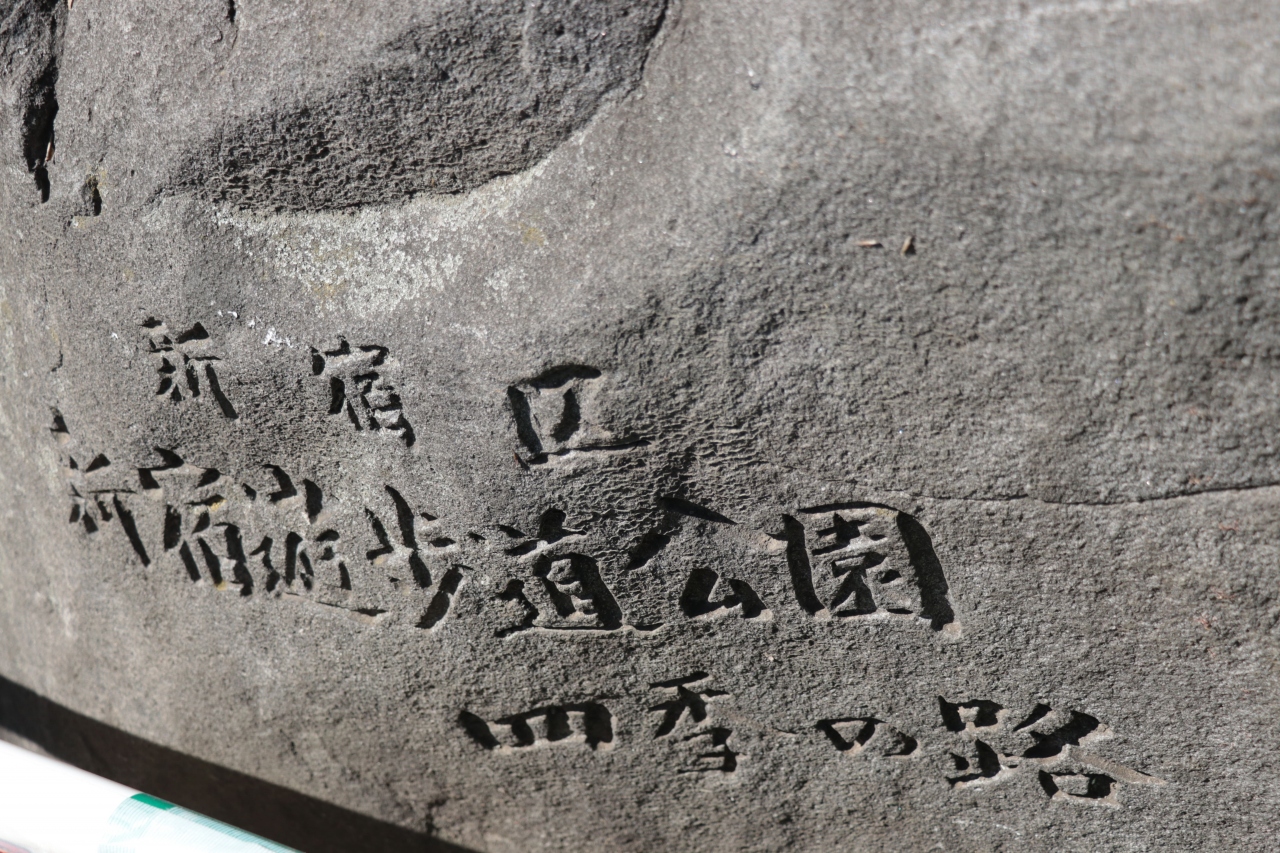 新宿区
新宿遊歩道公園
四季の路